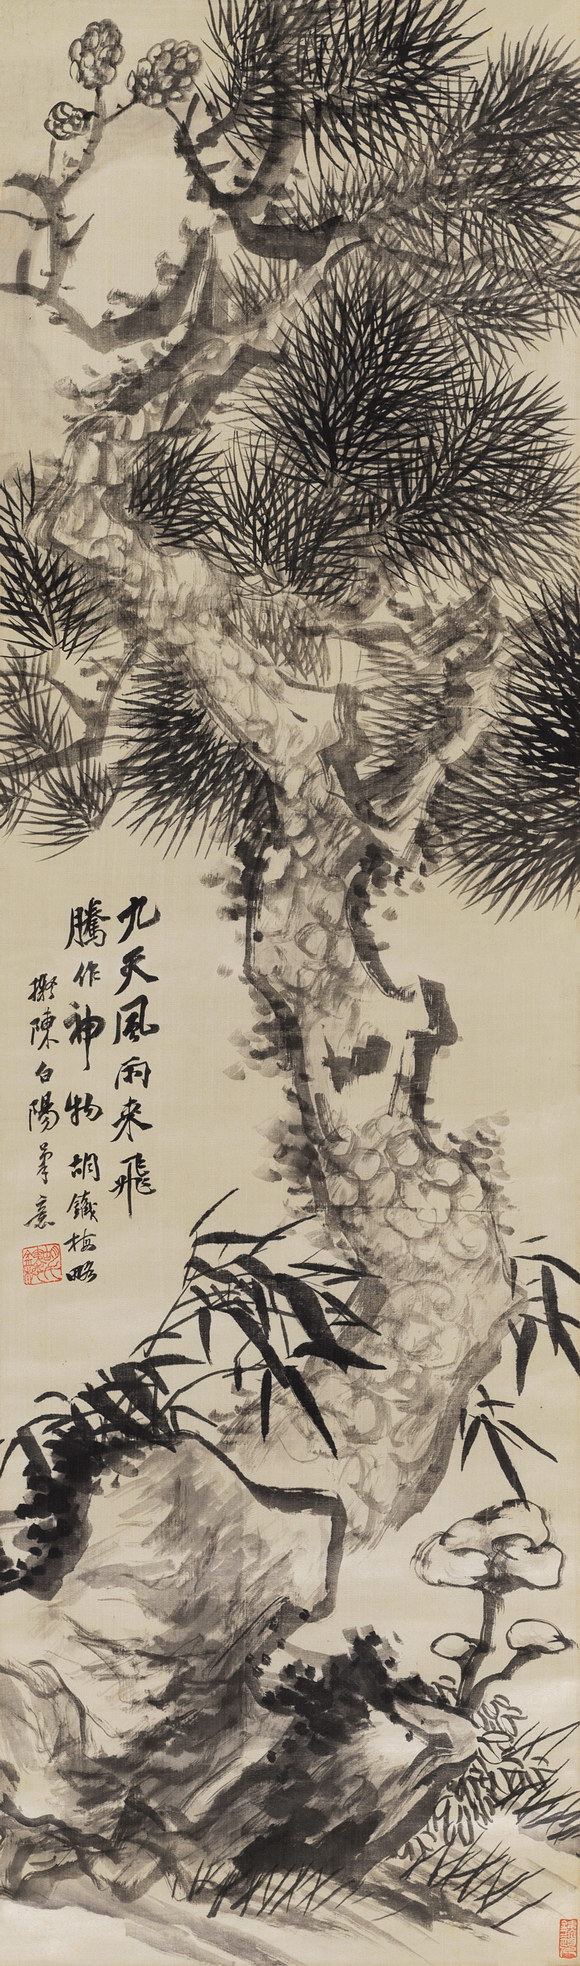 九天風雨来飛
騰作神物胡鐵梅略
擬陳白陽筆意